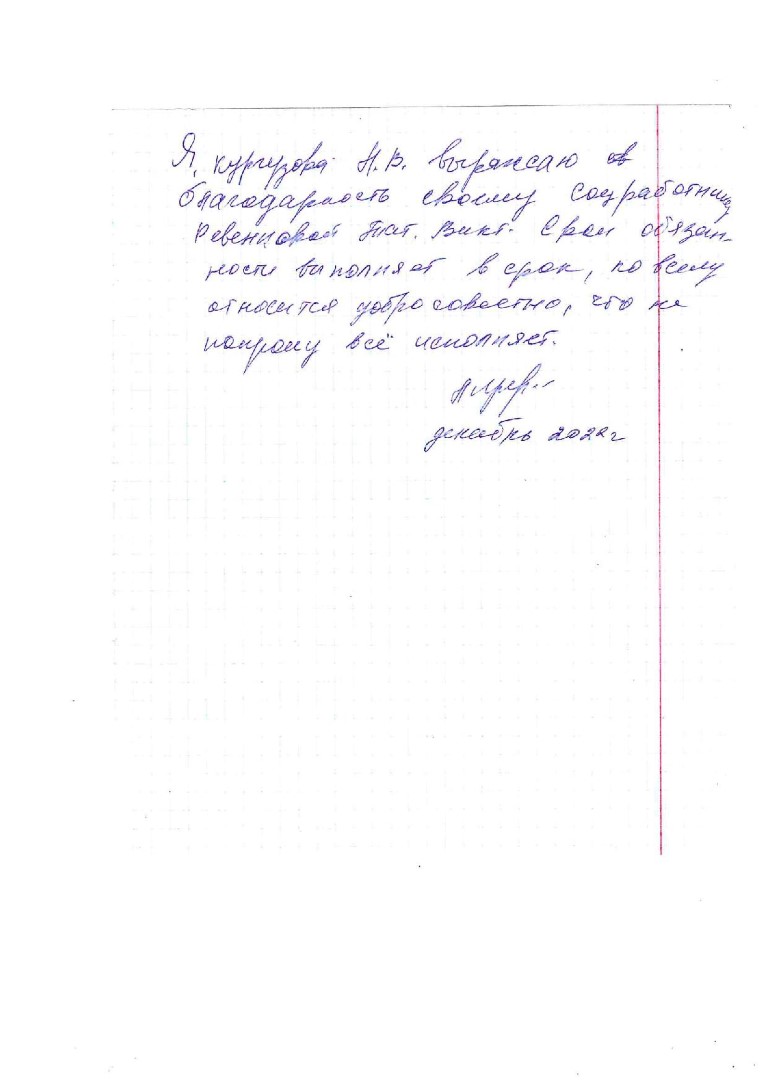 Я, Кургузова Н.В. выражаю
благодарность своему соцработнику
Ревенковой Тат. Викт. Свои обязан-
ности выполняет в срок, ко всему
относится добросовестно, что не
попрошу всё исполняет.
декабрь 2022г